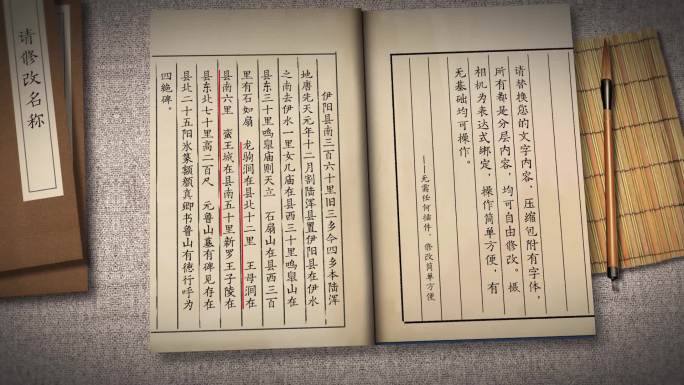 请修改名称
请替换您的文字内容，压缩包附有字体，
所有都是分层内容，均可自由修改。摄
相机为表达式绑定，操作简单方便，有
无基础均可操作。
——无需任何插件，修改简单方便
伊阳县南三百六十里旧三乡今四乡本陆浑
地唐先天元年十二月割陆浑县置伊阳县在伊水
之南去伊水一里女几庙在县西三十里鸣皋山在
县东三十里鸣皋庙则天立 石扇山在县西三百
里有石如扇 龙驹涧在县北十二里 王母涧在
县南六里 蛮王城在县南五十里新罗王子陵在
县东北七十里高二百尺 元鲁山墓有碑见存在
县北二十五阳冰篆额颜真卿书鲁山有德行呼为
四绝碑。